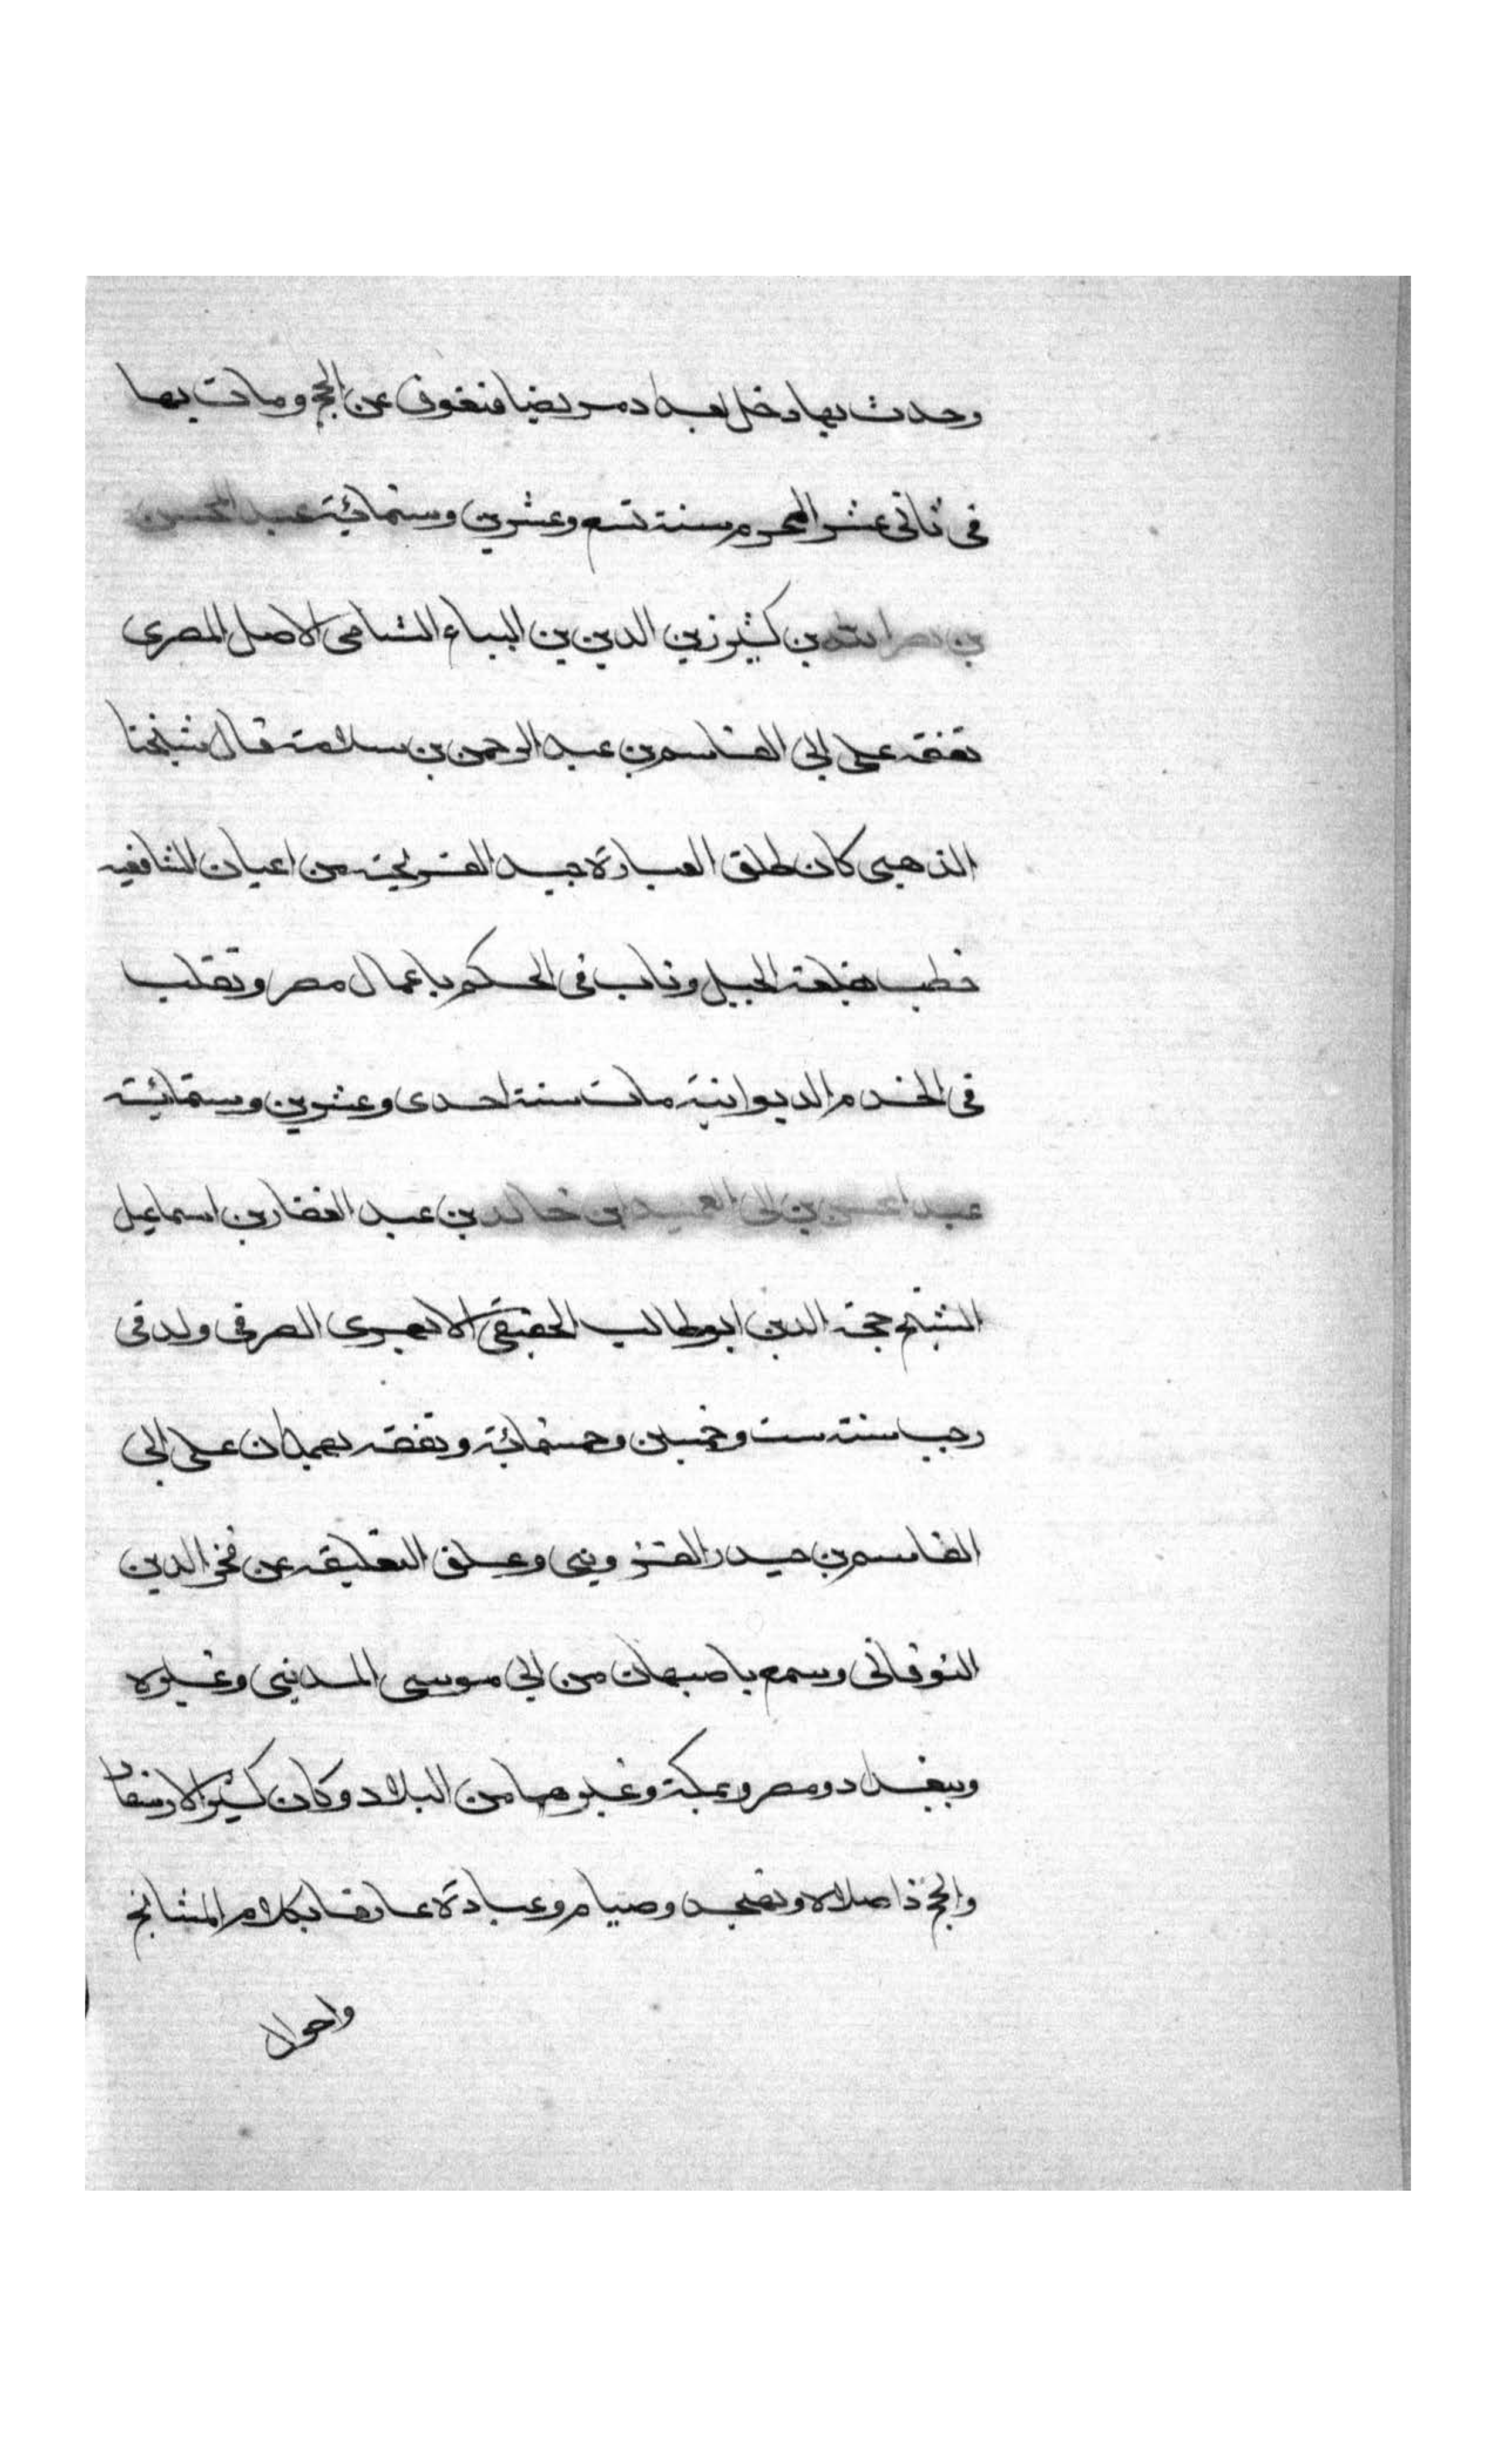 وحدث بها دخل بغداد مريضا فتعوق عن الحج ومات بها
فى ثانى عشر المحرم سنة تسع وعشرين وستمائة عبد المحسن
بن نصر الله بن كثير زين الدين بن البياع الشامى الاصل المصرى
تفقه على ابى القاسم بن عبد الرحمن بن سلامة قال شيخنا
الذهبى كان طلق العبارة جيد القريحة من اعيان الشافعيه
خطب بقلعة الجبل وناب فى الحكم باعمال مصر وتقلب
فى الخدم الديوانية مات سنة احدى وعشرين وستمائة
عبد المحسن بن ابى العميد بن خالد بن عبد الغفار بن اسماعيل
الشيخ حجة الدين ابو طالب الحفيفى الابهرى الصوفى ولد فى
رجب سنة ست وخمسين وخمسمائة وتفقه بهمدان على ابى
القاسم بن حيدر القزوينى وعلق التعليقه عن فخر الدين
النوقانى وسمع باصبهان من ابى موسى المدينى وغيره
وببغداد ومصر وبمكة وغيرهما من البلاد وكان كثير الاسفار
والحج ذا صلاة وتهجد وصيام وعبادة عارفا بكلام المشائخ
واحوال